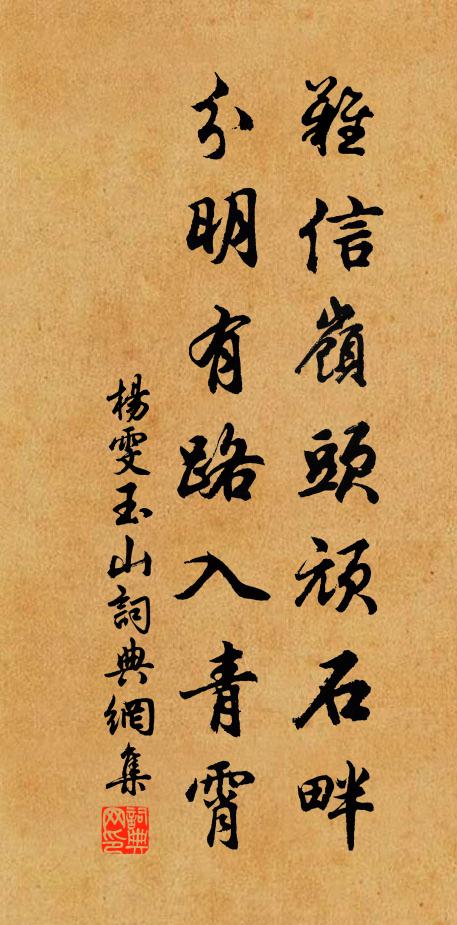 難信嶺頭頑石畔
分明有路入青霄
楊雯玉山詞典網集
詞典網印